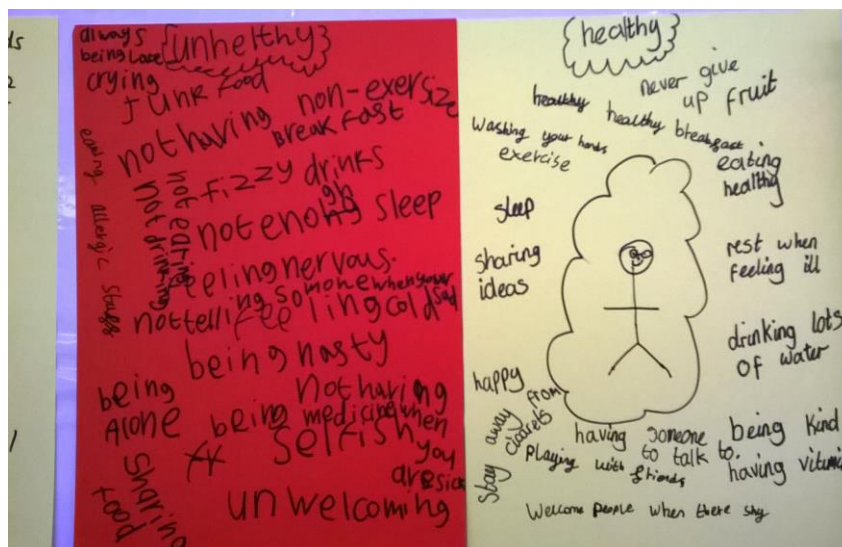 ds
2
always
being Late
unhelthy
crying
Junk food
non-exersize
not having
Break fast
fizzy drinks
eating allergic stuffs
not eating
not drinking
not enohg sleep
gh
feeling nervous.
not telling somone when your sad
feeling cold
being nasty
being
Alone
Not having
medicine when
you
are sick
being
selfish
sharing
food
unwelcoming
healthy
never give
up
fruit
healthy
healthy breakfast
washing your hands
exercise
eating
healthy
sleep
sharing
ideas
rest when
feeling ill
drinking lots
of water
happy
stay away from
cigarets
having someone
to talk to.
being kind
playing with
friends
having vitumi
Welcome people when there shy